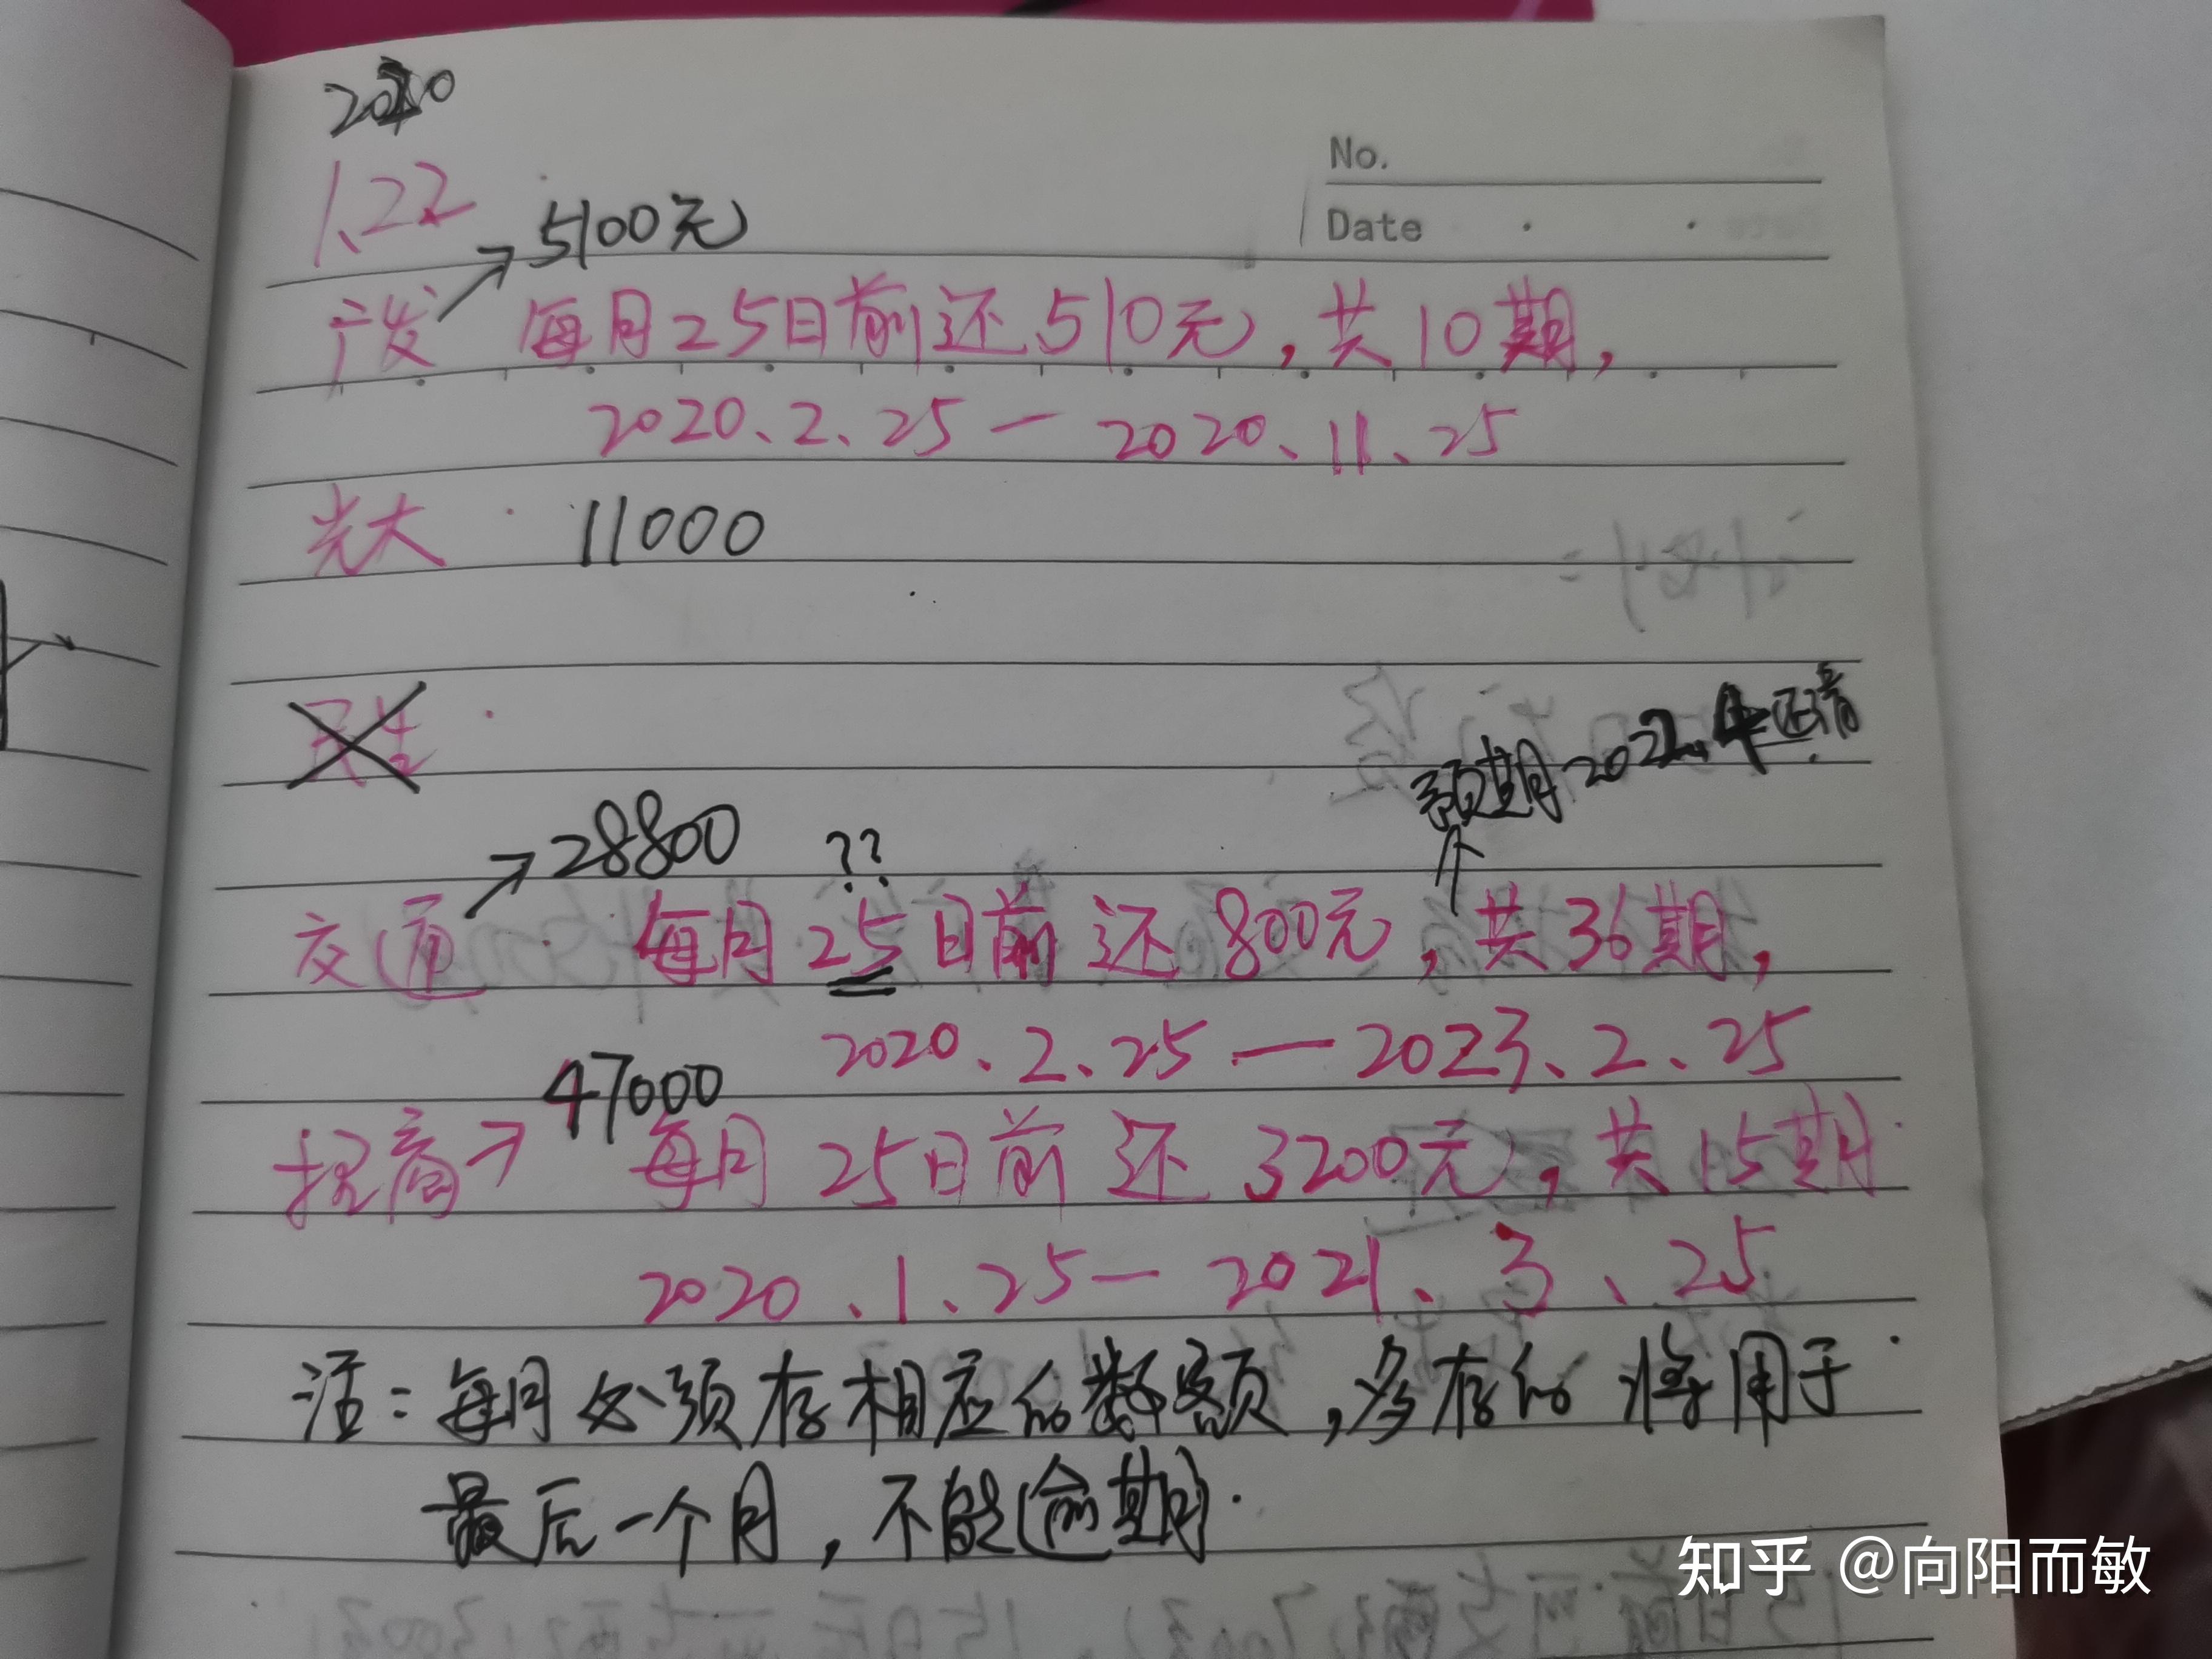 2020
1、22
5100元
No.
Date
广发 每月25日前还510元,共10期,
2020、2、25 — 2020、11、25
光大 11000
民生
预期2022.4还清
28800 ??
交通 每月25日前还800元,共36期,
2020、2、25 — 2023、2、25
47000
招商→ 每月25日前还3200元,共15期
2020、1、25 — 2021、3、25
注:每月必须存相应的数额,多存的将用于
最后一个月,不能逾期.
知乎 @向阳而敏